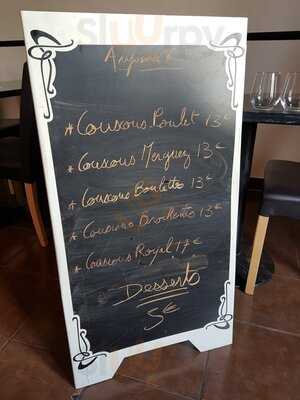 sluurpy
* Couscous Poulet 13€
* Couscous Merguez 13€
* Couscous Boulette 13€
* Couscous Brochette 13€
* Couscous Royal 17€
Desserts
5€